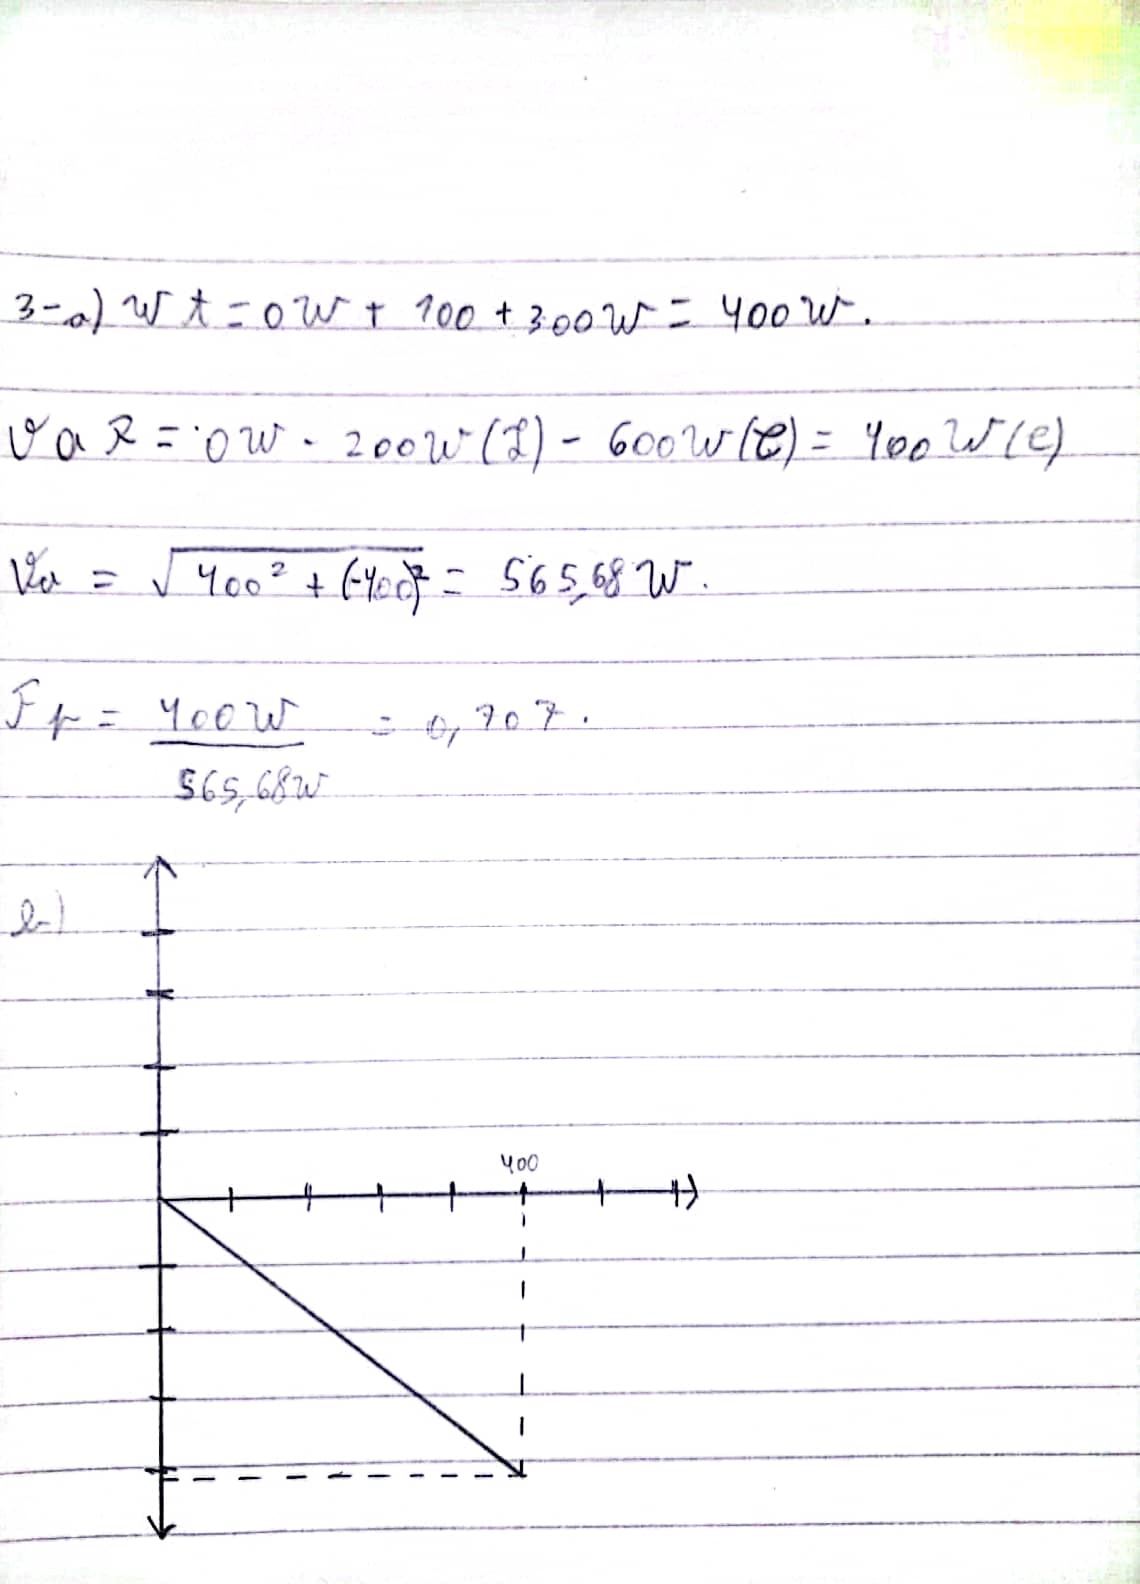 3-a) Wt = 0W + 100 + 300W = 400W.
VaR = 0W - 200W(L) - 600W(C) = 400W(C)
Va = √400² + (-400)² = 565,68 W.
Fp = 400W = 0,707.
565,68W
b)
400